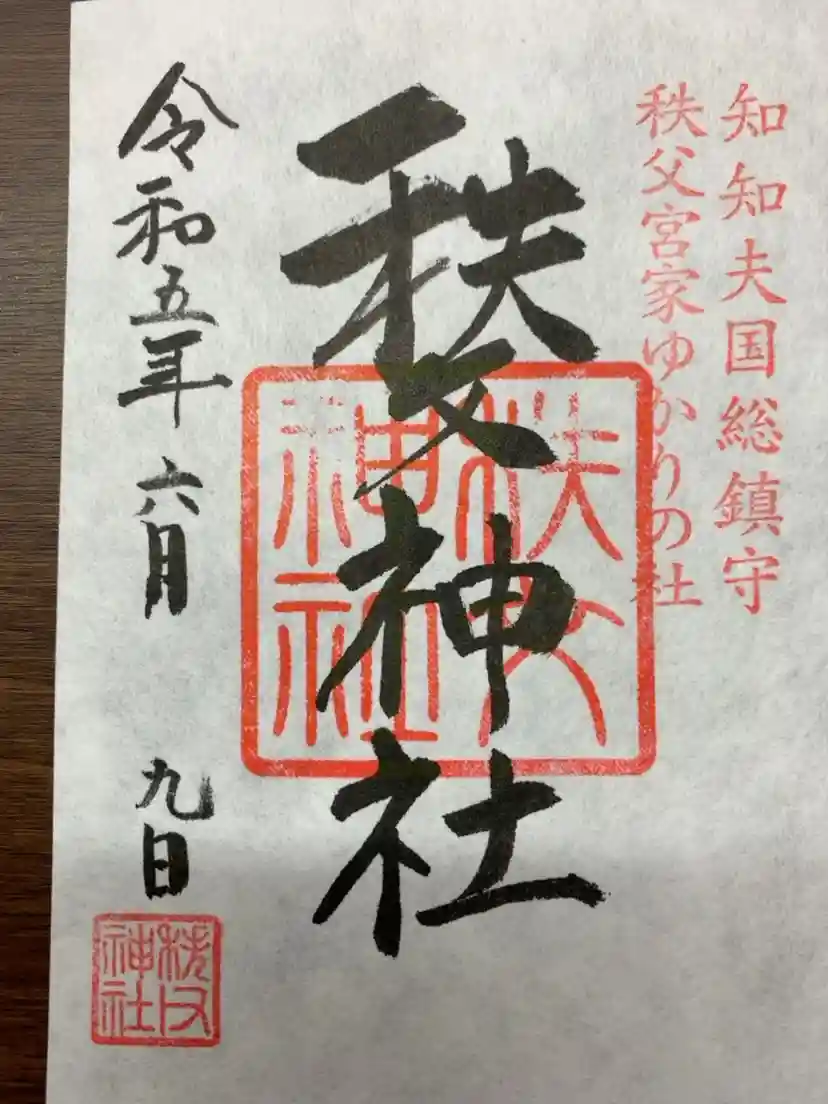 知知夫国総鎮守
秩父宮家ゆかりの社
秩父神社
秩父神社
令和五年六月九日
秩父神社